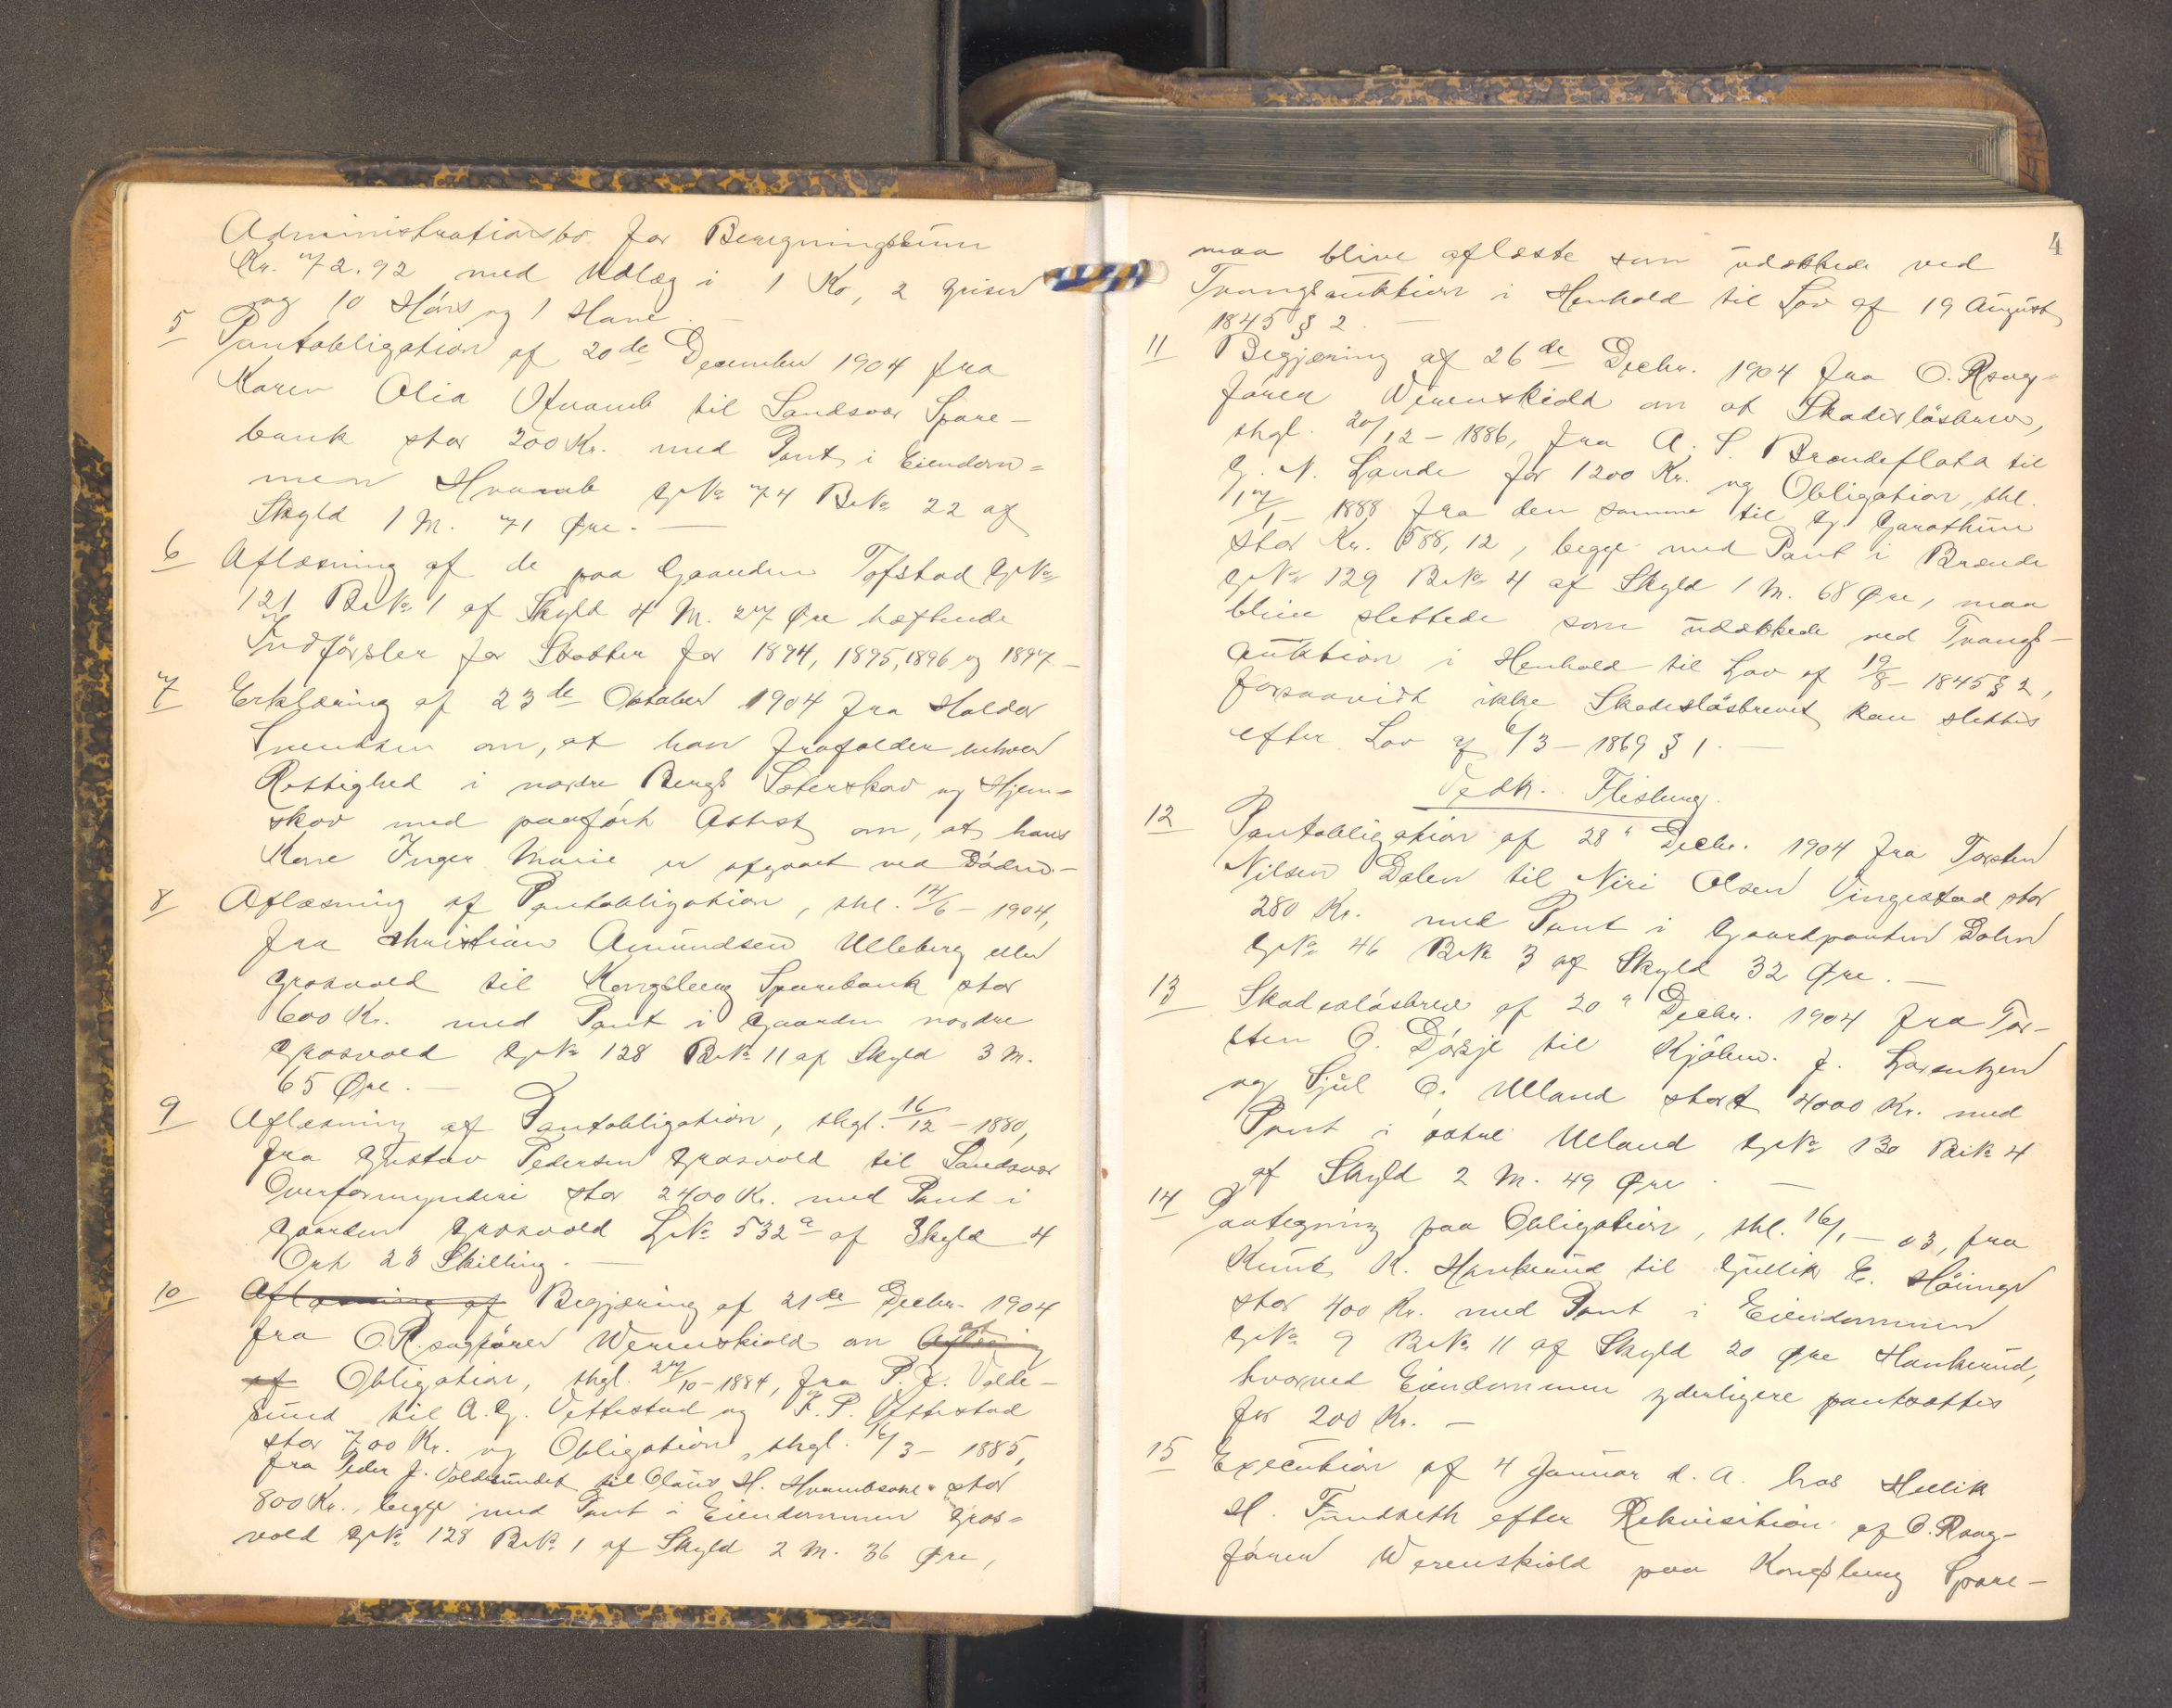 Administrationsbo for Beregningssum
Kr. 72.92 med Udlæg i 1 Ko, 2 Griser
og 10 Höns og 1 Hane. —
5 Pantobligation af 20de December 1904 fra
Karen Olia Hvamb til Sandsvær Spare-
bank stor 200 Kr. med Pant i Eiendom=
men Hvamb G.No 74 B.No 22 af
Skyld 1 M. 71 Øre. —
6 Aflæsning af de paa Gaarden Tofstad G.No
121 B.No 1 af Skyld 4 M. 27 Øre heftende
Indförsler for Skatter for 1894, 1895, 1896 og 1897 —
7 Erklæring af 23de Oktober 1904 fra Haldor
Svendsen om, at han frafalder enhver
Rettighed i nordre Bergs Sæterskov og Hjem=
skov med paaført Attest om, at hans
Kone Inger Marie er afgaaet ved Döden. —
8 Aflæsning af Pantobligation, thl. 14/6 - 1904,
fra Christian Amundsen Ulleberg eller
Grosvold til Kongsberg Sparebank stor
600 Kr. med Pant i Gaarden nordre
Grosvold G.No 128 B.No 11 af Skyld 3 M.
65 Øre. —
9 Aflæsning af Pantobligation, thgl. 16/12 - 1880,
fra Gustav Pedersen Grosvold til Sandsvær
Overformynderi stor 2400 Kr. med Pant i
Gaarden Grosvold L.No 532a af Skyld 4
Ort 23 Skilling. —
10 Aflæsning af Begjæring af 21de Decbr. 1904
fra O.R.sagförer Werenskiold om Aflæsning at
af Obligation, thgl. 27/10 - 1884, fra P. J. Volde-
sund til A. G. Vettestad og K. P. Vettestad
stor 700 Kr. og Obligation, thgl. 16/3 - 1885,
fra Peder J. Voldesundet til Olaus H. Hvambsane stor
800 Kr., begge med Pant i Eiendommen Gros=
vold G.No 128 B.No 1 af Skyld 2 M. 36 Øre,
4
maa blive aflæste som udækkede ved
Tvangsauktion i Henhold til Lov af 19 August
1845 § 2. —
11 Begjæring af 26de Decbr. 1904 fra O.Rsag-
förer Werenskiold om at Skadeslösbrev,
thgl. 20/12 - 1886, fra A. S. Brændeflata til
G. N. Lande for 1200 Kr. og Obligation, thl.
17/1 - 1888 fra den samme til G. Garathun
stor Kr. 588,12, begge med Pant i Brænde
G.No 129 B.No 4 af Skyld 1 M. 68 Øre, maa
blive slettede som udækkede ved Tvangs-
auktion i Henhold til Lov af 19/8 - 1845 § 2,
forsaavidt ikke Skadeslösbrevet kan slettes
efter Lov af 6/3 - 1869 § 1. —
Vedk. Flesberg.
12 Pantobligation af 28" Decbr. 1904 fra Torsten
Nilsen Dalen til Niri Olsen Vingestad stor
280 Kr. med Pant i Gaardparten Dalen
G.No 46 B.No 3 af Skyld 32 Øre. —
13 Skadeslösbrev af 20" Decbr. 1904 fra Tor-
sten O. Dörje til Kjöbm. J. Lorentzen
og Sjul O. Ulland stort 4000 Kr. med
Pant i östre Ulland G.No 130 B.No 4
af Skyld 2 M. 49 Øre. —
14 Paategning paa Obligation, thl. 16/1 - 03, fra
Knut K. Hankerud til Gullik E. Höimyr
stor 400 Kr. med Pant i Eiendommen
G.No 9 B.No 11 af Skyld 20 Øre Hankerud,
hvorved Eiendommen yderligere pantsættes
for 200 Kr. —
15 Execution af 4 Januar d. A. hos Hellik
H. Fundseth efter Rekvisition af O.Rsag-
förer Werenskiold paa Kongsberg Spare-